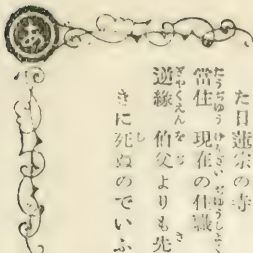 た日蓮宗の寺
當住 現在の住職
逆緣 伯父よりも先
きに死ぬのでいふ